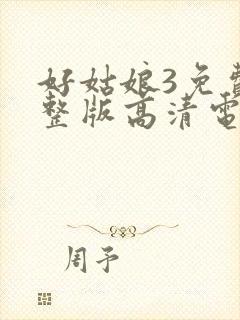 好姑娘3免費
整版高清電
周予